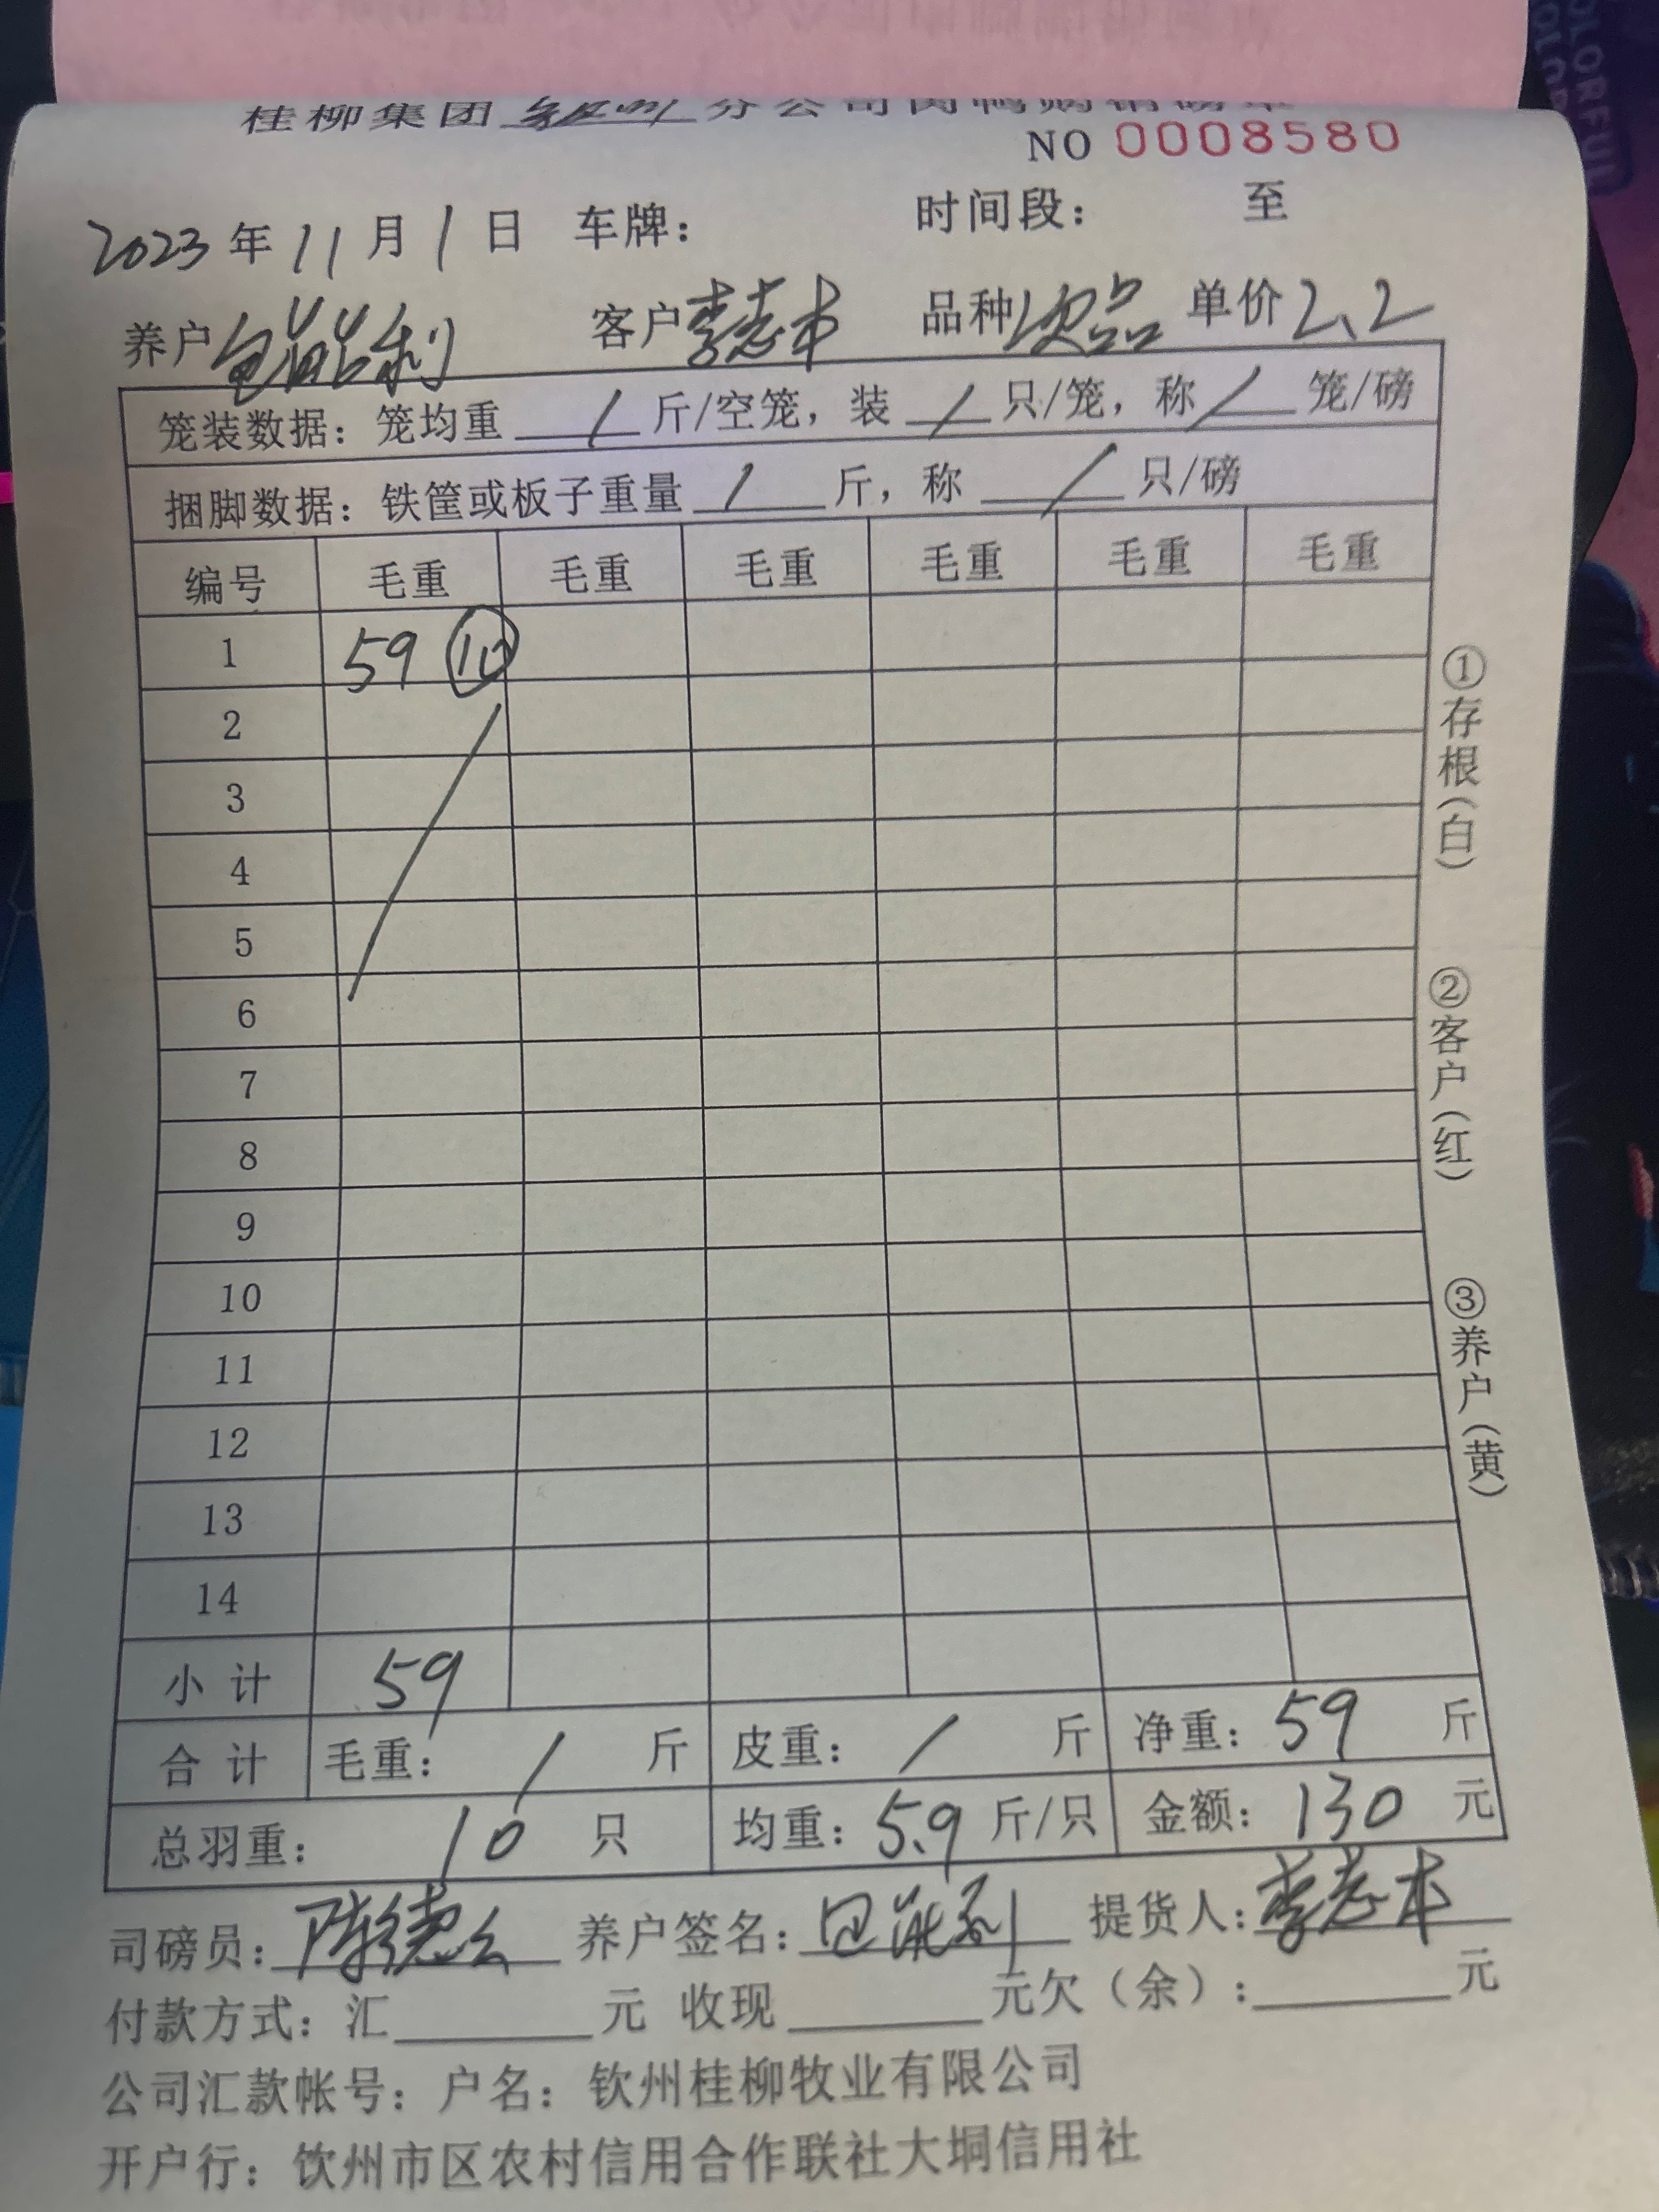 桂柳集团 分公司肉鸭购销磅单
NO 0008580
2023年11月1日 车牌: 时间段: 至
养户 能利 客户李志本 品种次品 单价2.2
笼装数据: 笼均重 / 斤/空笼, 装 / 只/笼, 称 / 笼/磅
捆脚数据: 铁筐或板子重量 / 斤, 称 / 只/磅
编号 毛重 毛重 毛重 毛重 毛重 毛重
1 59 ⑩
2
3
4
5
6
7
8
9
10
11
12
13
14
小计 59
合计 毛重: / 斤 皮重: / 斤 净重: 59 斤
总羽重: 10 只 均重: 5.9 斤/只 金额: 130 元
司磅员: 陈德 养户签名: 能利 提货人: 李志本
付款方式: 汇 元 收现 元欠(余): 元
公司汇款帐号: 户名: 钦州桂柳牧业有限公司
开户行: 钦州市区农村信用合作联社大垌信用社
①存根(白)
②客户(红)
③养户(黄)
COLORFUL